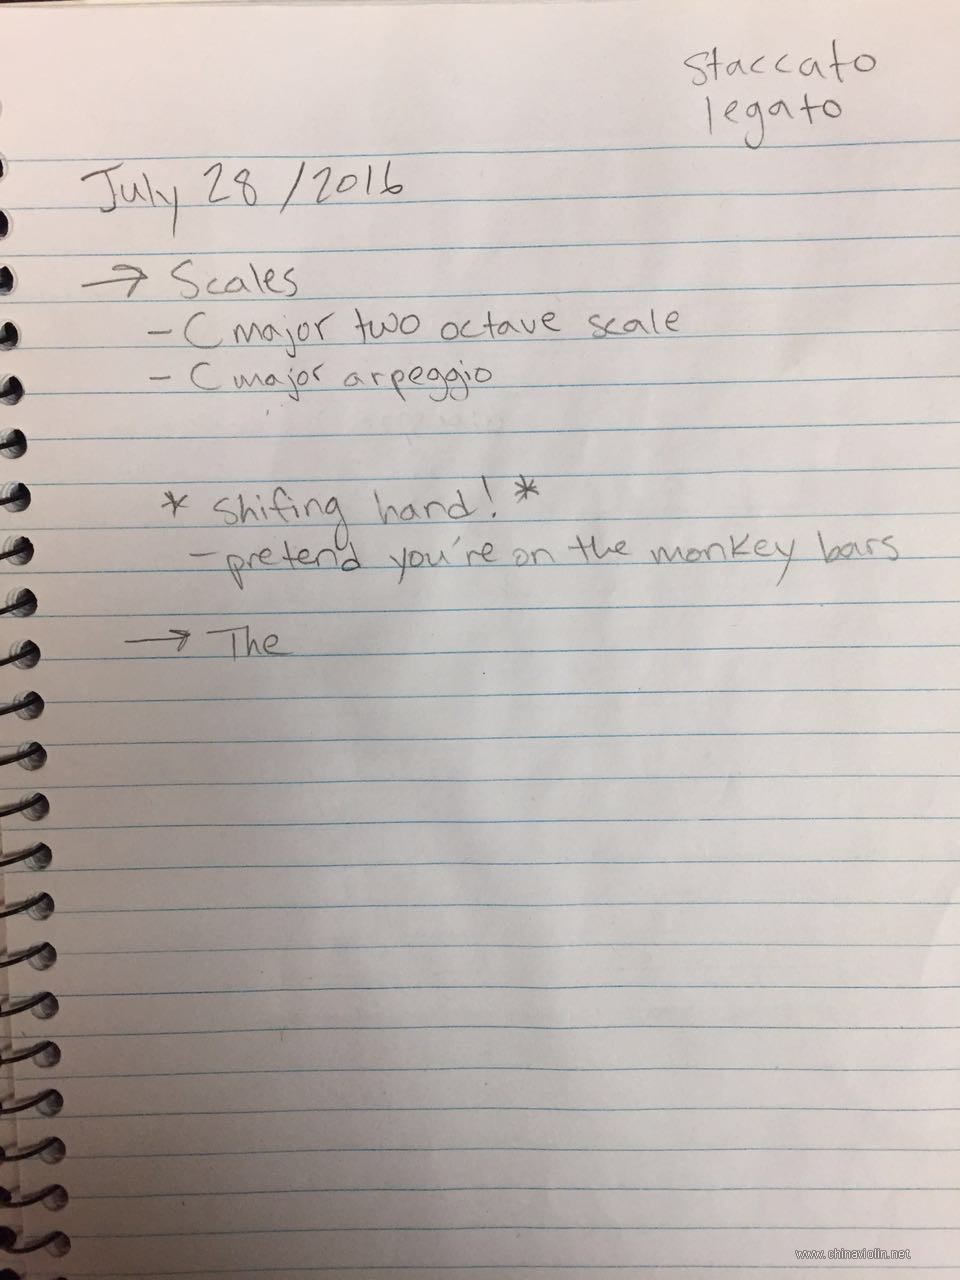 staccato
legato
July 28 /2016
→ Scales
- C major two octave scale
- C major arpeggio
* shifing hand! *
- pretend you're on the monkey bars
→ The
www.chinaviolin.net